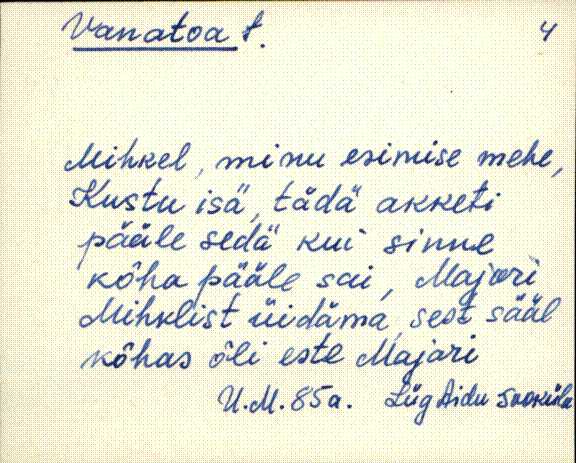 Vanatoa t. 4
Mihkel, minu esimise mehe,
Kustu isä, tädä akketi
pääle sedä kui sinne
kõha pääle sai, Majari
Mihklist üidäma, sest sääl
kõhas õli este Majari
U.M. 85a. Lüg Aidu Sooküla